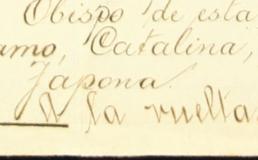 Obispo de esta
amo, Catalina,
Japona.
A la vuelta